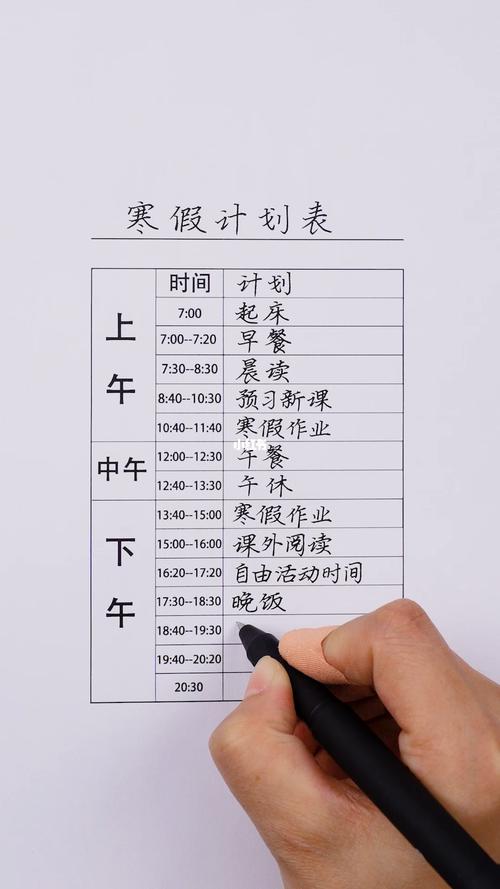 寒假计划表
时间 计划
上午
7:00 起床
7:00--7:20 早餐
7:30--8:30 晨读
8:40--10:30 预习新课
10:40--11:40 寒假作业
小红书
中午
12:00--12:30 午餐
12:40--13:30 午休
下午
13:40--15:00 寒假作业
15:00--16:00 课外阅读
16:20--17:20 自由活动时间
17:30--18:30 晚饭
18:40--19:30
19:40--20:20
20:30